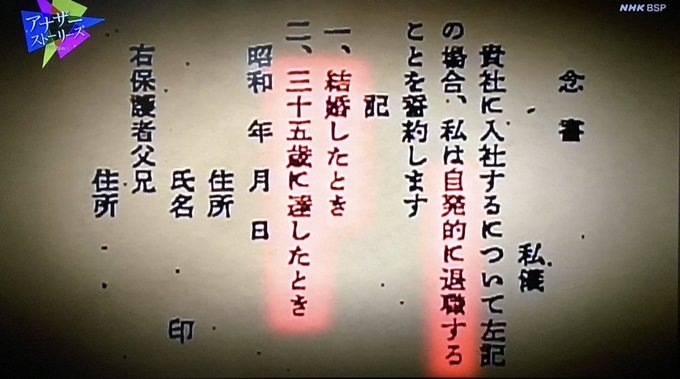 アナザー
ストーリーズ
NHK BSP
念書
私儀
貴社に入社するについて左記
の場合、私は自発的に退職する
ことを誓約します
記
一、結婚したとき
二、三十五歳に達したとき
昭和 年 月 日
住所
氏名 印
右保護者父兄
住所